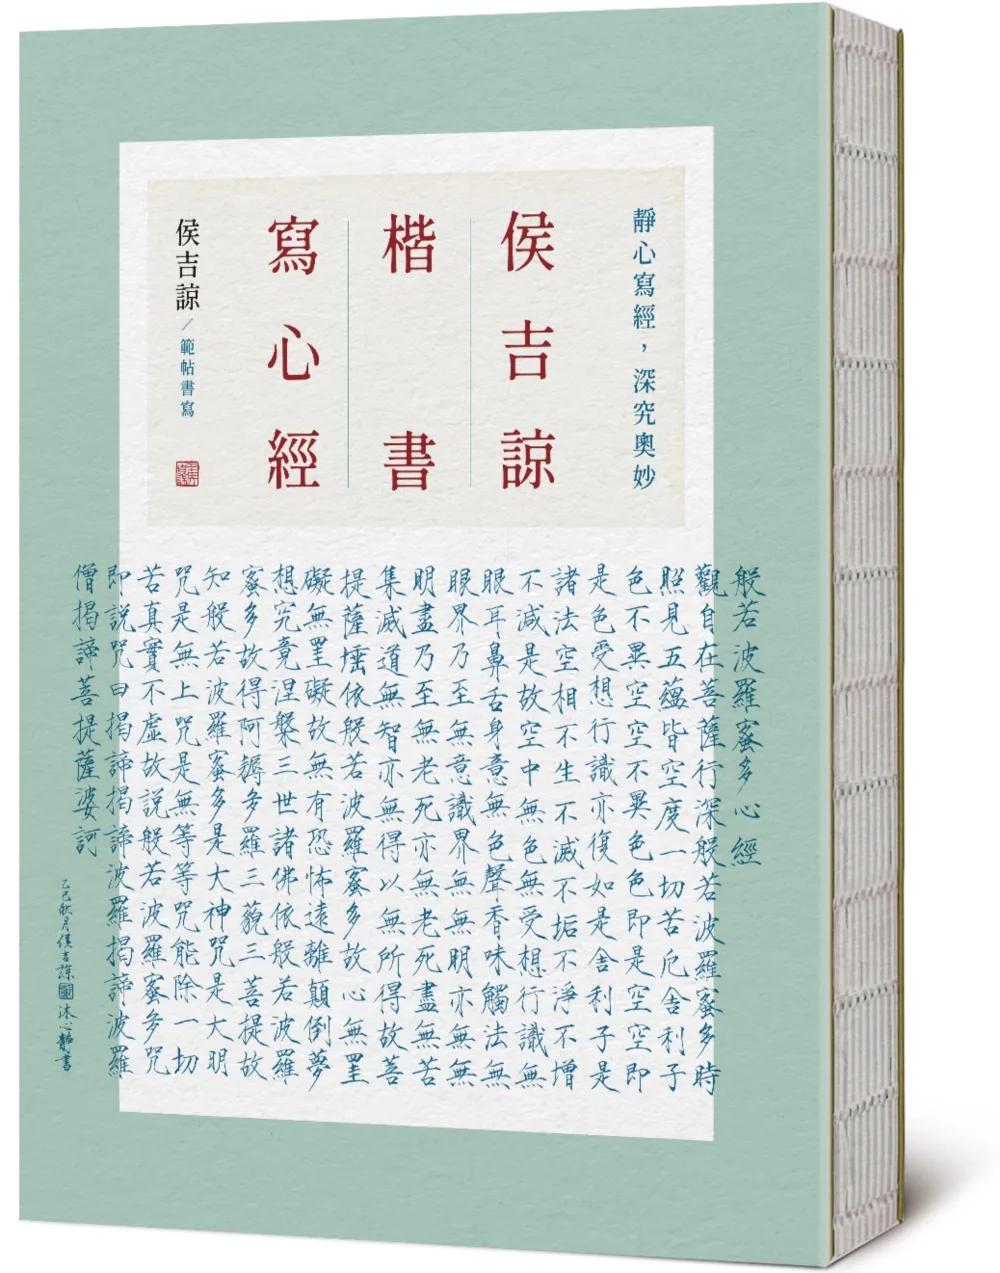 靜心寫經，深究奧妙
侯吉諒
楷書
寫心經
侯吉諒／範帖書寫
般若波羅蜜多心經
觀自在菩薩行深般若波羅蜜多時
照見五蘊皆空度一切苦厄舍利子
色不異空空不異色色即是空空即
是色受想行識亦復如是舍利子是
諸法空相不生不滅不垢不淨不增
不減是故空中無色無受想行識無
眼耳鼻舌身意無色聲香味觸法無
眼界乃至無意識界無無明亦無無
明盡乃至無老死亦無老死盡無苦
集滅道無智亦無得以無所得故菩
提薩埵依般若波羅蜜多故心無罣
礙無罣礙故無有恐怖遠離顛倒夢
想究竟涅槃三世諸佛依般若波羅
蜜多故得阿耨多羅三藐三菩提故
知般若波羅蜜多是大神咒是大明
咒是無上咒是無等等咒能除一切
苦真實不虛故說般若波羅蜜多咒
即說咒曰揭諦揭諦波羅揭諦波羅
僧揭諦菩提薩婆訶
乙巳秋月侯吉諒沐心靜書